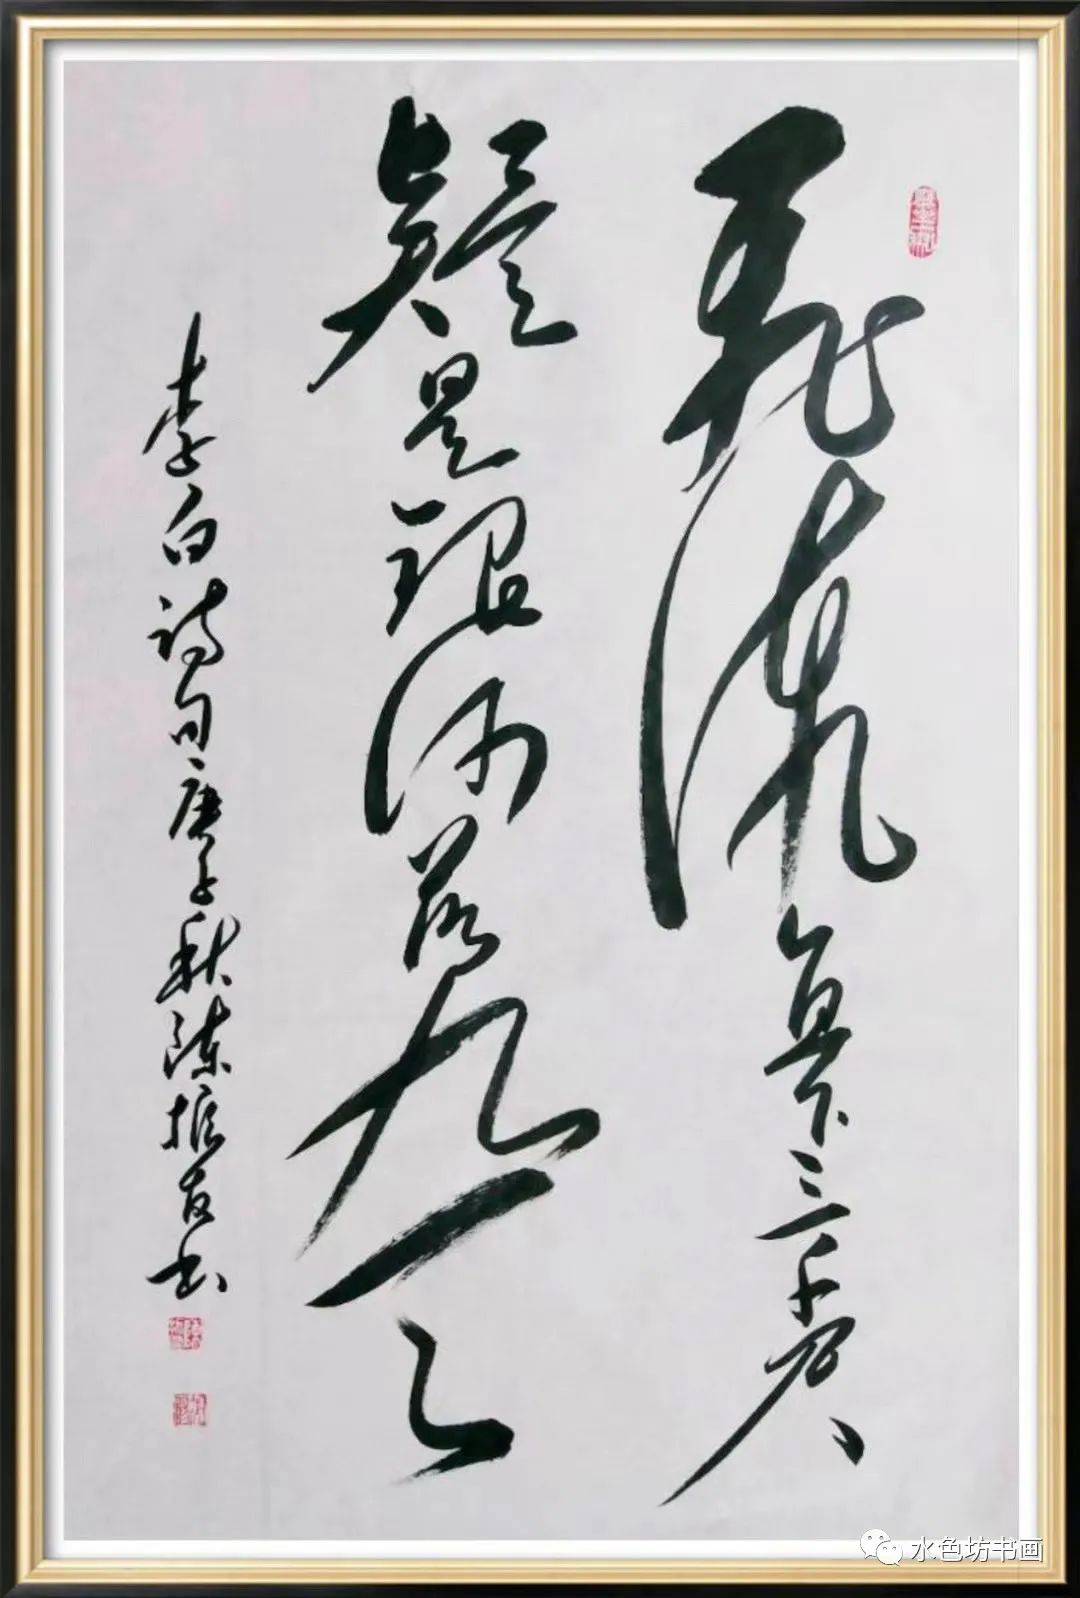 飛流直下三千尺
疑是银河落九天
李白诗句庚子秋陈振友书
水色坊书画